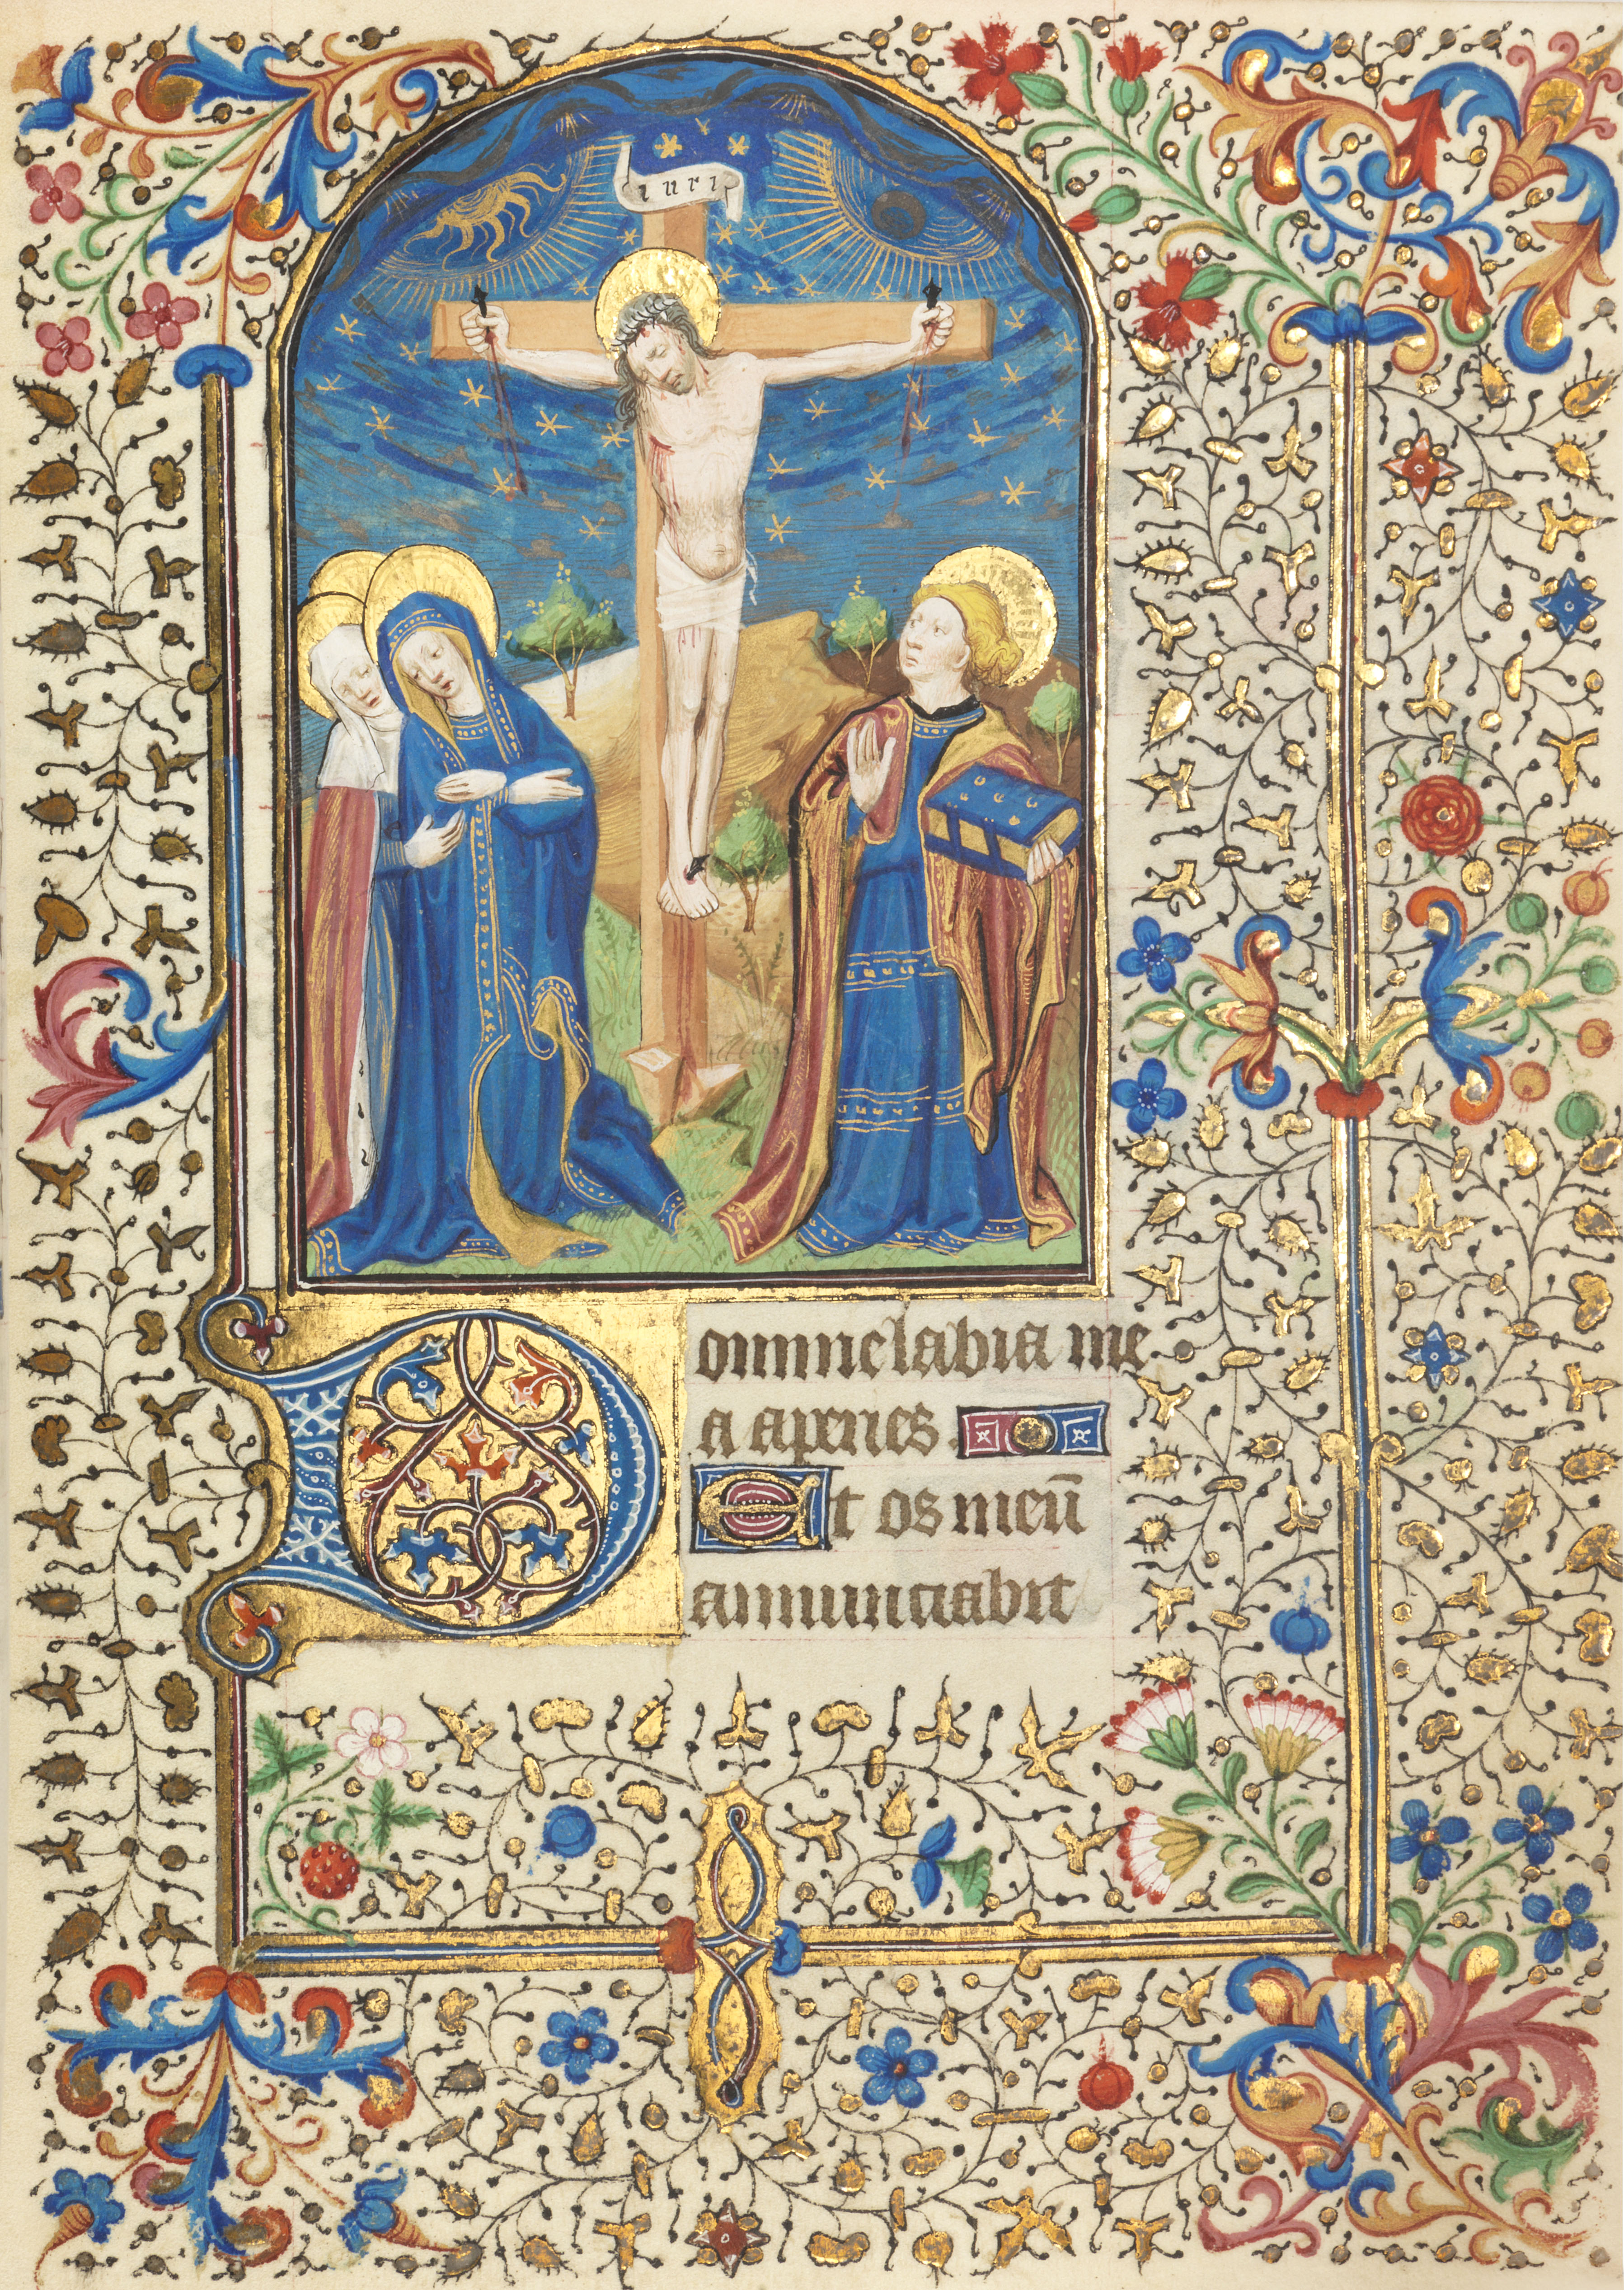 inri
Domine labia me
a aperies
Et os meū
annunciabit